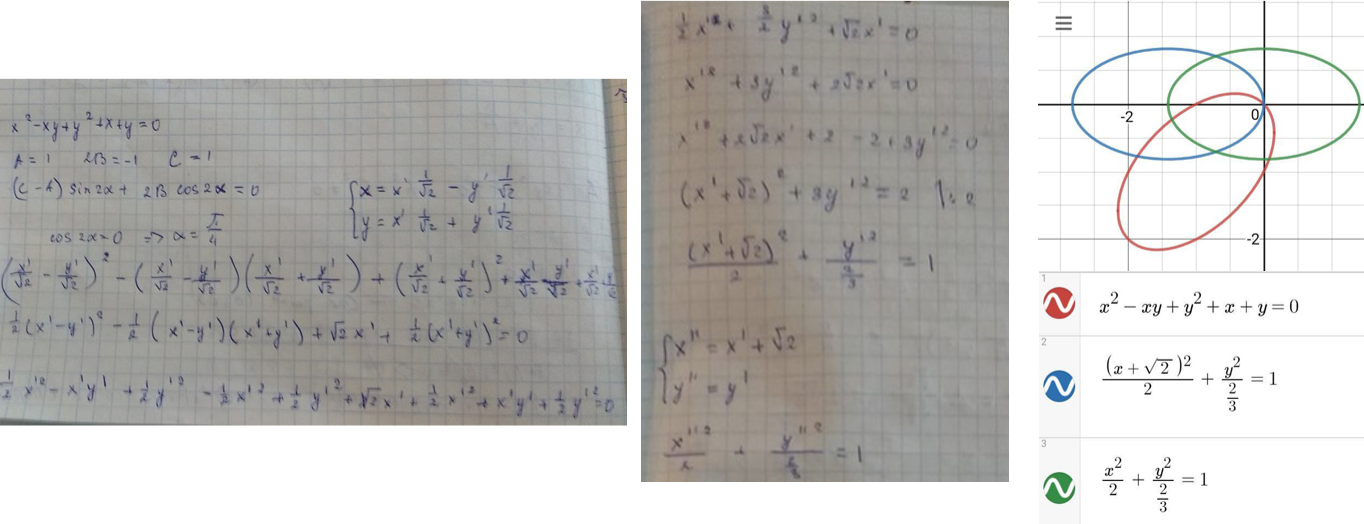 x² - xy + y² + x + y = 0
A = 1 2B = -1 C = 1
(C - A) sin 2α + 2B cos 2α = 0
cos 2α = 0 => α = π/4
{ x = x' 1/√2 - y' 1/√2
y = x' 1/√2 + y' 1/√2
(x'/√2 - y'/√2)² - (x'/√2 - y'/√2)(x'/√2 + y'/√2) + (x'/√2 + y'/√2)² + x'/√2
1/2 (x' - y')² - 1/2 (x' - y')(x' + y') + √2 x' + 1/2 (x' + y')² = 0
1/2 x'² - x'y' + 1/2 y'² - 1/2 x'² + 1/2 y'² + √2 x' + 1/2 x'² + x'y' + 1/2 y'² = 0
1/2 x'² + 3/2 y'² + √2 x' = 0
x'² + 3y'² + 2√2 x' = 0
x'² + 2√2 x' + 2 - 2 + 3y'² = 0
(x' + √2)² + 3y'² = 2 |: 2
(x' + √2)²/2 + y'²/(2/3) = 1
{ x'' = x' + √2
y'' = y'
x''²/2 + y''²/(2/3) = 1
-2 0
-2
1
x² - xy + y² + x + y = 0
2
(x + √2)²/2 + y²/(2/3) = 1
3
x²/2 + y²/(2/3) = 1